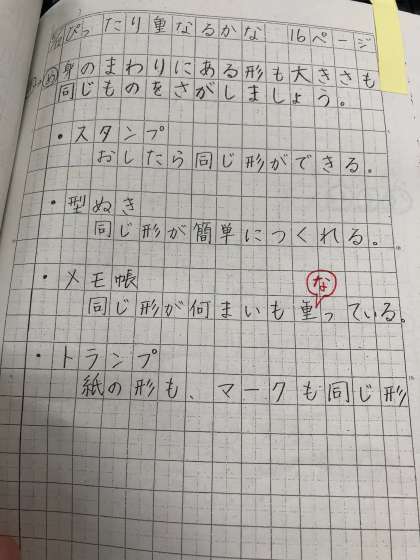 ぴったり重なるかな 16ページ
め 身のまわりにある形も大きさも
同じものをさがしましょう。
・スタンプ
おしたら同じ形ができる。
・型ぬき
同じ形が簡単につくれる。
・メモ帳
な
同じ形が何まいも重っている。
・トランプ
紙の形も、マークも同じ形